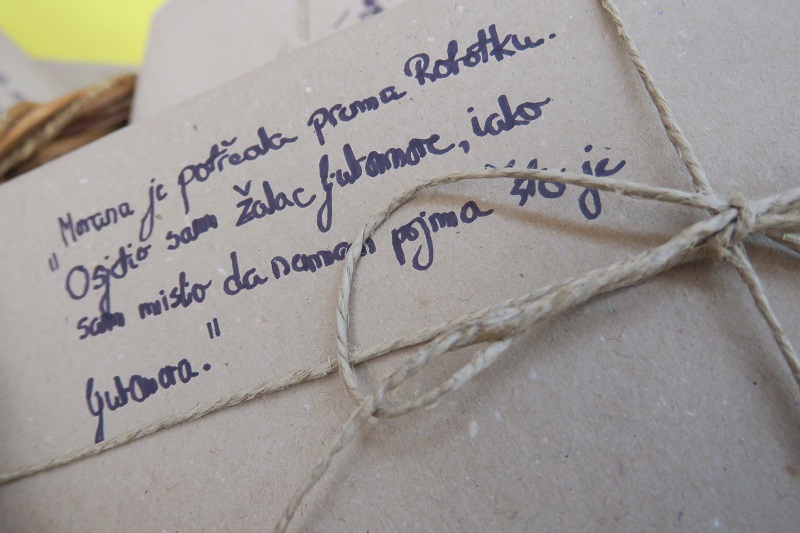 "Morana je potrčala prema Robotku.
Osjetio sam žalac ljutomore, iako
sam mislio da nemam pojma što je
ljutomora."